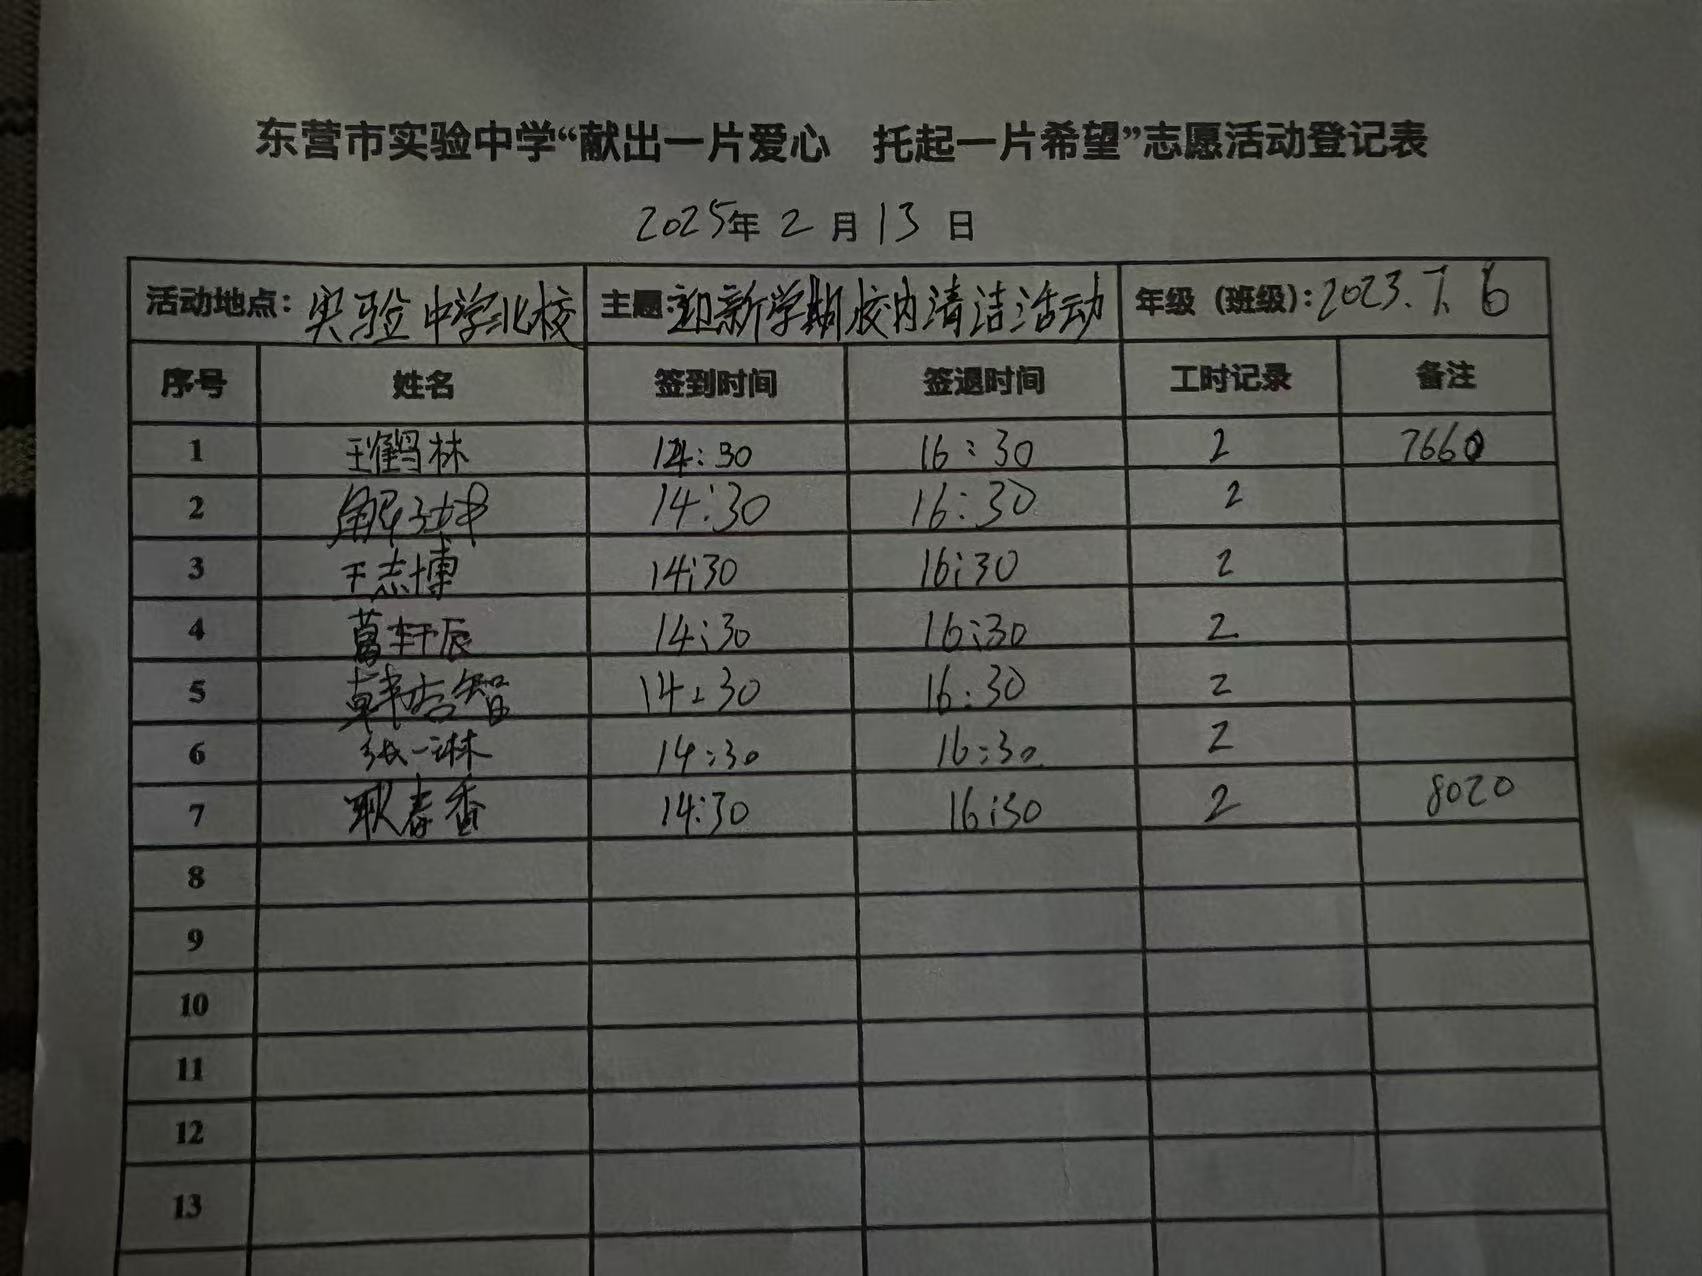 东营市实验中学“献出一片爱心 托起一片希望”志愿活动登记表
2025年 2 月 13 日
活动地点：实验中学北校 主题：迎新学期校内清洁活动 年级（班级）：2023.7.6
序号 姓名 签到时间 签退时间 工时记录 备注
1 王鹤林 14:30 16:30 2 7660
2 解子坤 14:30 16:30 2
3 王志博 14:30 16:30 2
4 葛轩辰 14:30 16:30 2
5 韩吉智 14:30 16:30 2
6 张一琳 14:30 16:30 2
7 耿春香 14:30 16:30 2 8020
8
9
10
11
12
13